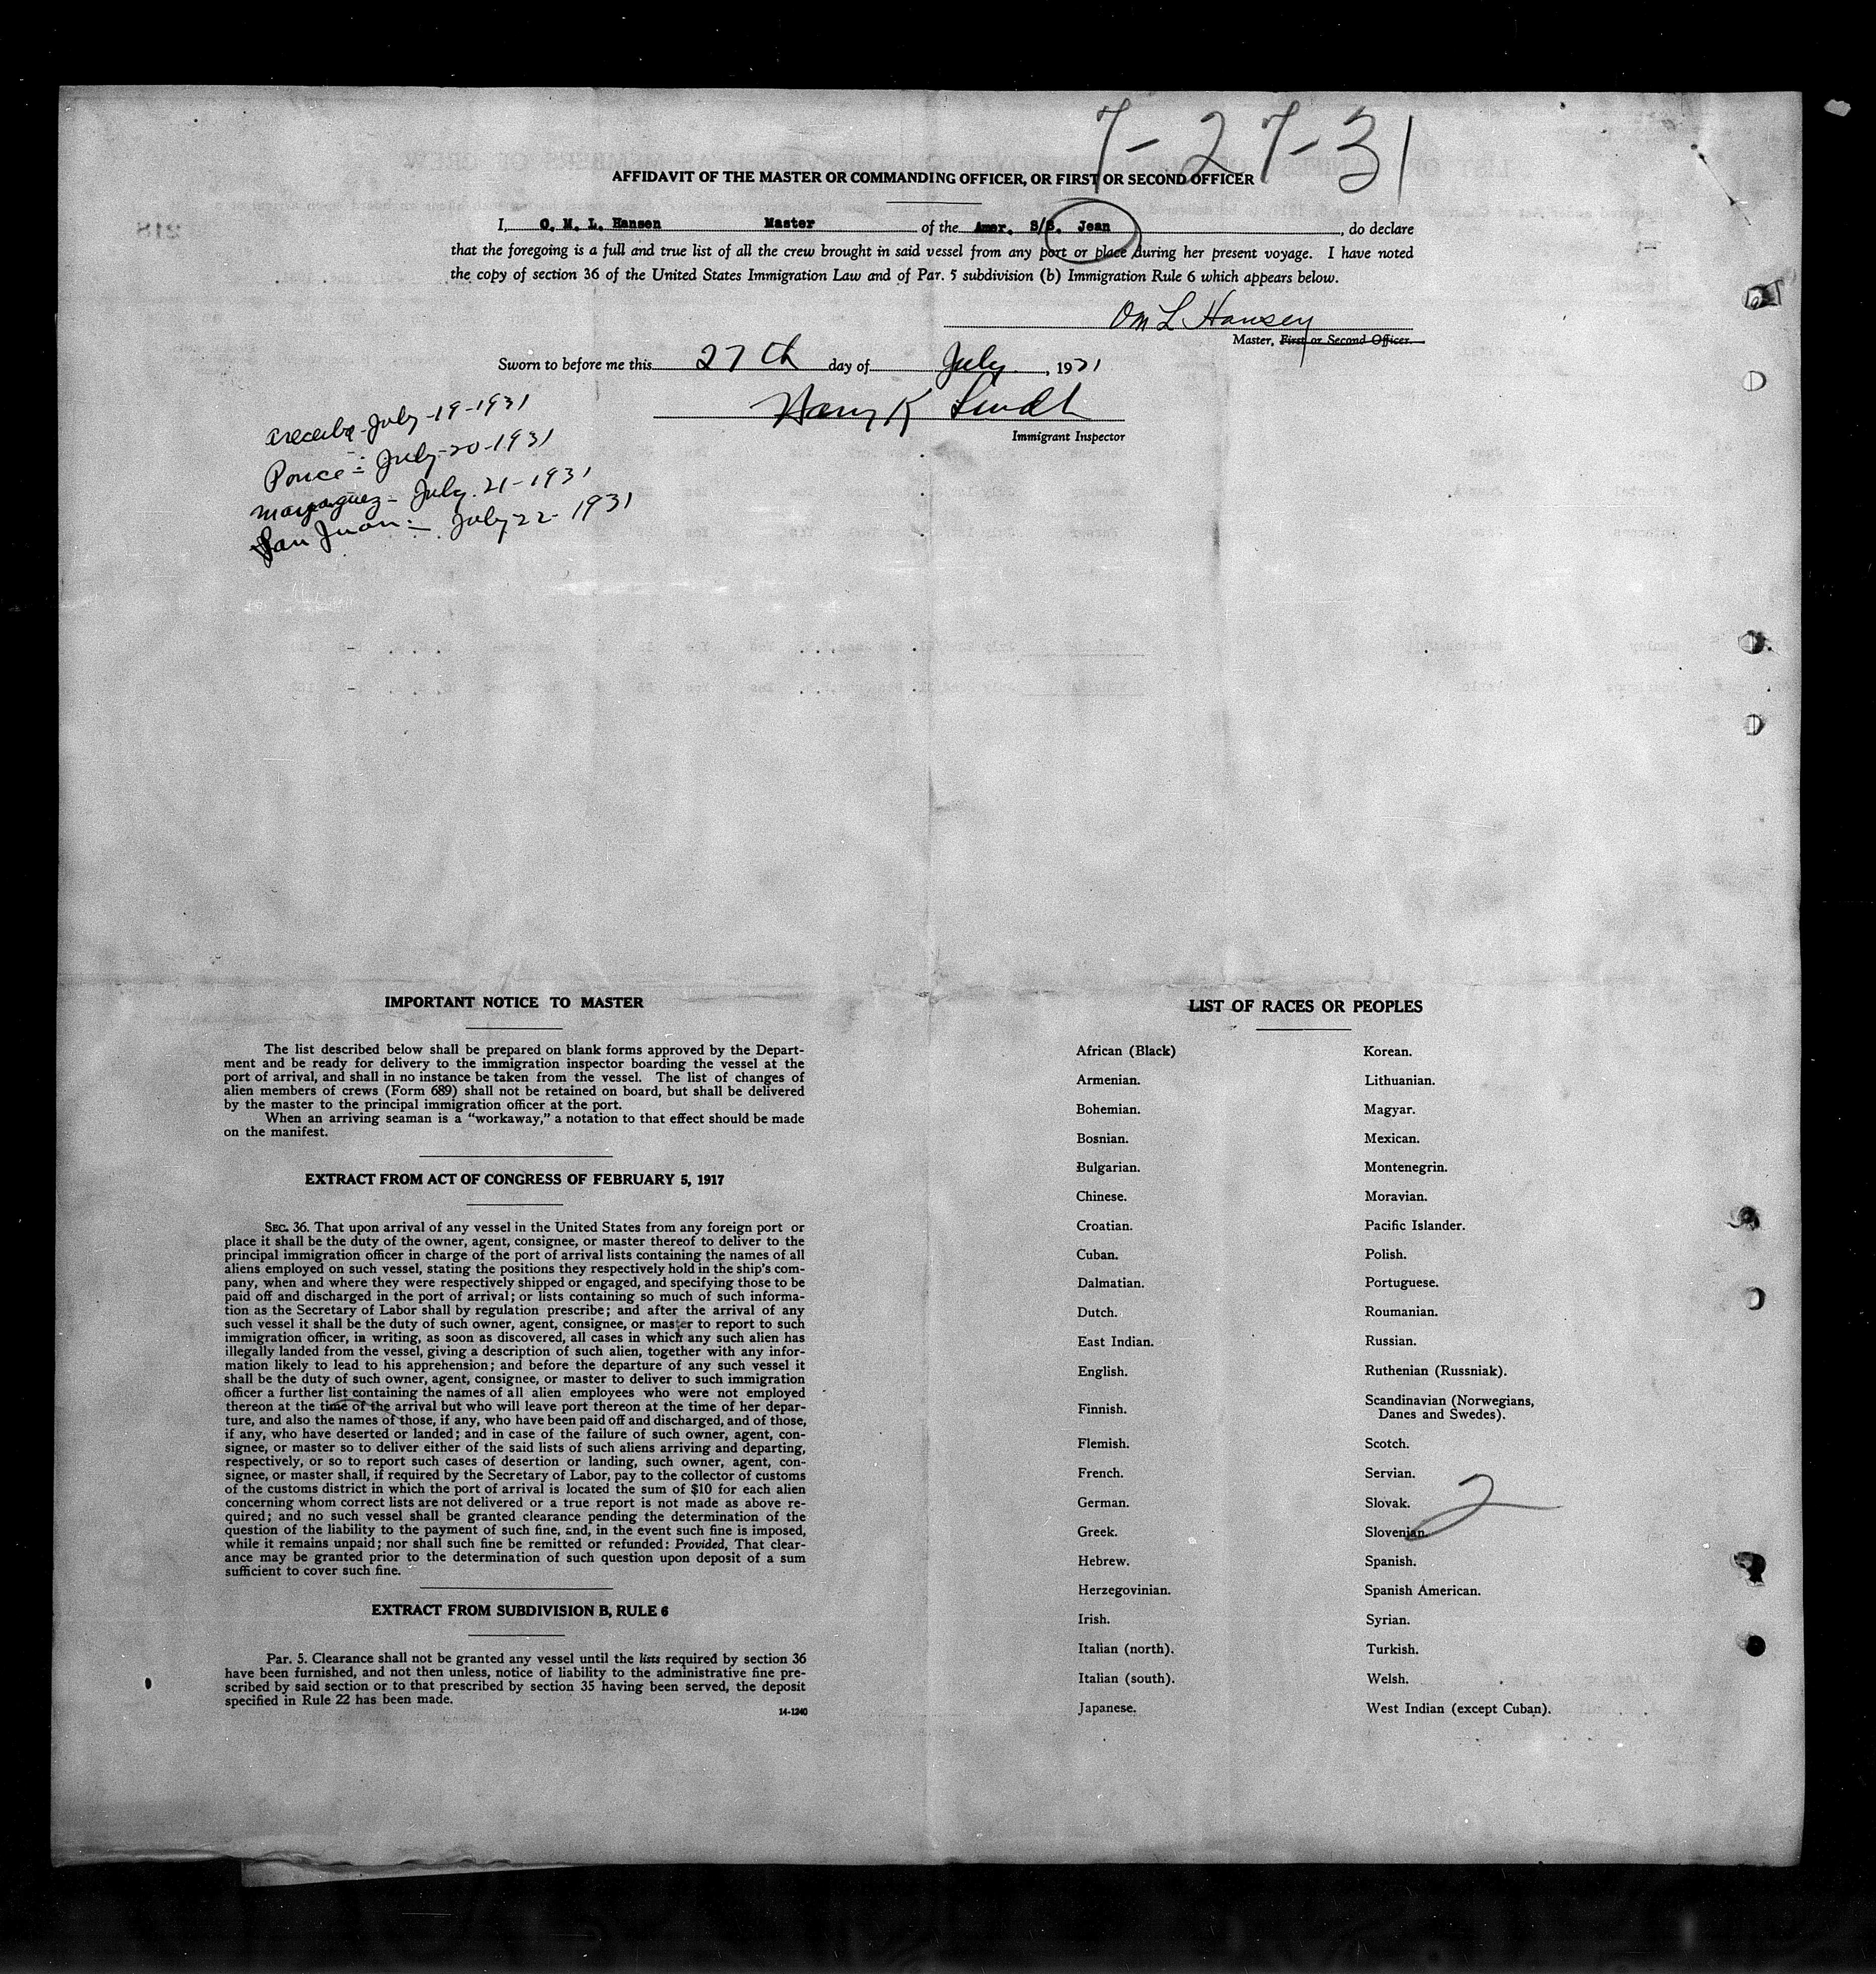 7-27-31
AFFIDAVIT OF THE MASTER OR COMMANDING OFFICER, OR FIRST OR SECOND OFFICER
I, O. M. L. Hansen Master of the Amer. S/S. Jean, do declare
that the foregoing is a full and true list of all the crew brought in said vessel from any port or place during her present voyage. I have noted
the copy of section 36 of the United States Immigration Law and of Par. 5 subdivision (b) Immigration Rule 6 which appears below.
OM L Hansen
Master, First or Second Officer.
Sworn to before me this 27th day of July, 1931
Harry K
Immigrant Inspector
Arecibo - July-19-1931
Ponce - July-20-1931
Mayaguez - July. 21-1931
San Juan - July-22-1931
IMPORTANT NOTICE TO MASTER
The list described below shall be prepared on blank forms approved by the Depart-
ment and be ready for delivery to the immigration inspector boarding the vessel at the
port of arrival, and shall in no instance be taken from the vessel. The list of changes of
alien members of crews (Form 689) shall not be retained on board, but shall be delivered
by the master to the principal immigration officer at the port.
When an arriving seaman is a "workaway," a notation to that effect should be made
on the manifest.
EXTRACT FROM ACT OF CONGRESS OF FEBRUARY 5, 1917
SEC. 36. That upon arrival of any vessel in the United States from any foreign port or
place it shall be the duty of the owner, agent, consignee, or master thereof to deliver to the
principal immigration officer in charge of the port of arrival lists containing the names of all
aliens employed on such vessel, stating the positions they respectively hold in the ship's com-
pany, when and where they were respectively shipped or engaged, and specifying those to be
paid off and discharged in the port of arrival; or lists containing so much of such informa-
tion as the Secretary of Labor shall by regulation prescribe; and after the arrival of any
such vessel it shall be the duty of such owner, agent, consignee, or master to report to such
immigration officer, in writing, as soon as discovered, all cases in which any such alien has
illegally landed from the vessel, giving a description of such alien, together with any infor-
mation likely to lead to his apprehension; and before the departure of any such vessel it
shall be the duty of such owner, agent, consignee, or master to deliver to such immigration
officer a further list containing the names of all alien employees who were not employed
thereon at the time of the arrival but who will leave port thereon at the time of her depar-
ture, and also the names of those, if any, who have been paid off and discharged, and of those,
if any, who have deserted or landed; and in case of the failure of such owner, agent, con-
signee, or master so to deliver either of the said lists of such aliens arriving and departing,
respectively, or so to report such cases of desertion or landing, such owner, agent, con-
signee, or master shall, if required by the Secretary of Labor, pay to the collector of customs
of the customs district in which the port of arrival is located the sum of $10 for each alien
concerning whom correct lists are not delivered or a true report is not made as above re-
quired; and no such vessel shall be granted clearance pending the determination of the
question of the liability to the payment of such fine, and, in the event such fine is imposed,
while it remains unpaid; nor shall such fine be remitted or refunded: Provided, That clear-
ance may be granted prior to the determination of such question upon deposit of a sum
sufficient to cover such fine.
EXTRACT FROM SUBDIVISION B, RULE 6
Par. 5. Clearance shall not be granted any vessel until the lists required by section 36
have been furnished, and not then unless, notice of liability to the administrative fine pre-
scribed by said section or to that prescribed by section 35 having been served, the deposit
specified in Rule 22 has been made.
14-1240
LIST OF RACES OR PEOPLES
African (Black)
Armenian.
Bohemian.
Bosnian.
Bulgarian.
Chinese.
Croatian.
Cuban.
Dalmatian.
Dutch.
East Indian.
English.
Finnish.
Flemish.
French.
German.
Greek.
Hebrew.
Herzegovinian.
Irish.
Italian (north).
Italian (south).
Japanese.
Korean.
Lithuanian.
Magyar.
Mexican.
Montenegrin.
Moravian.
Pacific Islander.
Polish.
Portuguese.
Roumanian.
Russian.
Ruthenian (Russniak).
Scandinavian (Norwegians,
Danes and Swedes).
Scotch.
Servian.
Slovak.
Slovenian.
Spanish.
Spanish American.
Syrian.
Turkish.
Welsh.
West Indian (except Cuban).
2